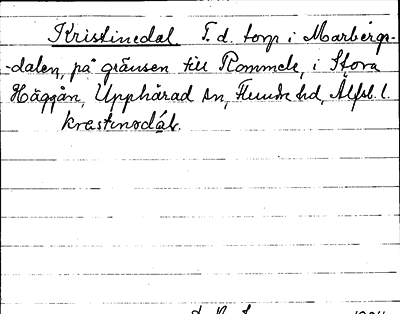 Kristinedal F. d. torp i Marbergs-
-dalen, på gränsen till Rommele, i Stora
Häggån, Upphärad sn, Flundre hd, Älfsb. l.
krastinədál.